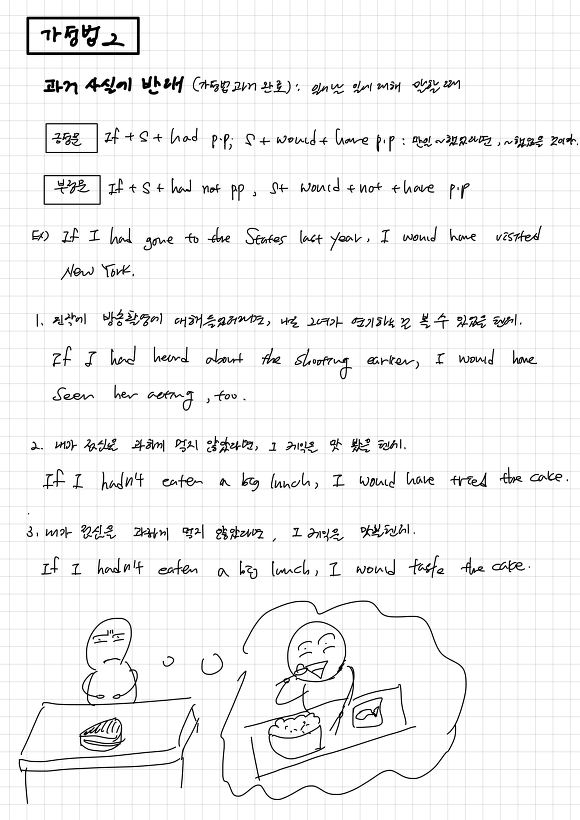 가정법 2
과거 사실의 반대 (가정법 과거 완료) : 일어난 일에 대해 말할 때
긍정문 If + S + had p.p, S + would + have p.p : 만일 ~했었다면, ~했을 것이다.
부정문 If + S + had not pp, S + would + not + have p.p
Ex) If I had gone to the States last year, I would have visited
New York.
1. 진작에 방송촬영에 대해 들었더라면, 나도 그녀가 연기하는 걸 볼 수 있었을 텐데.
If I had heard about the shooting earlier, I would have
seen her acting, too.
2. 내가 점심을 과하게 먹지 않았다면, 그 케익을 맛 봤을 텐데.
If I hadn't eaten a big lunch, I would have tried the cake.
3. 내가 점심을 과하게 먹지 않았다면, 그 케익을 맛볼텐데.
If I hadn't eaten a big lunch, I would taste the cake.